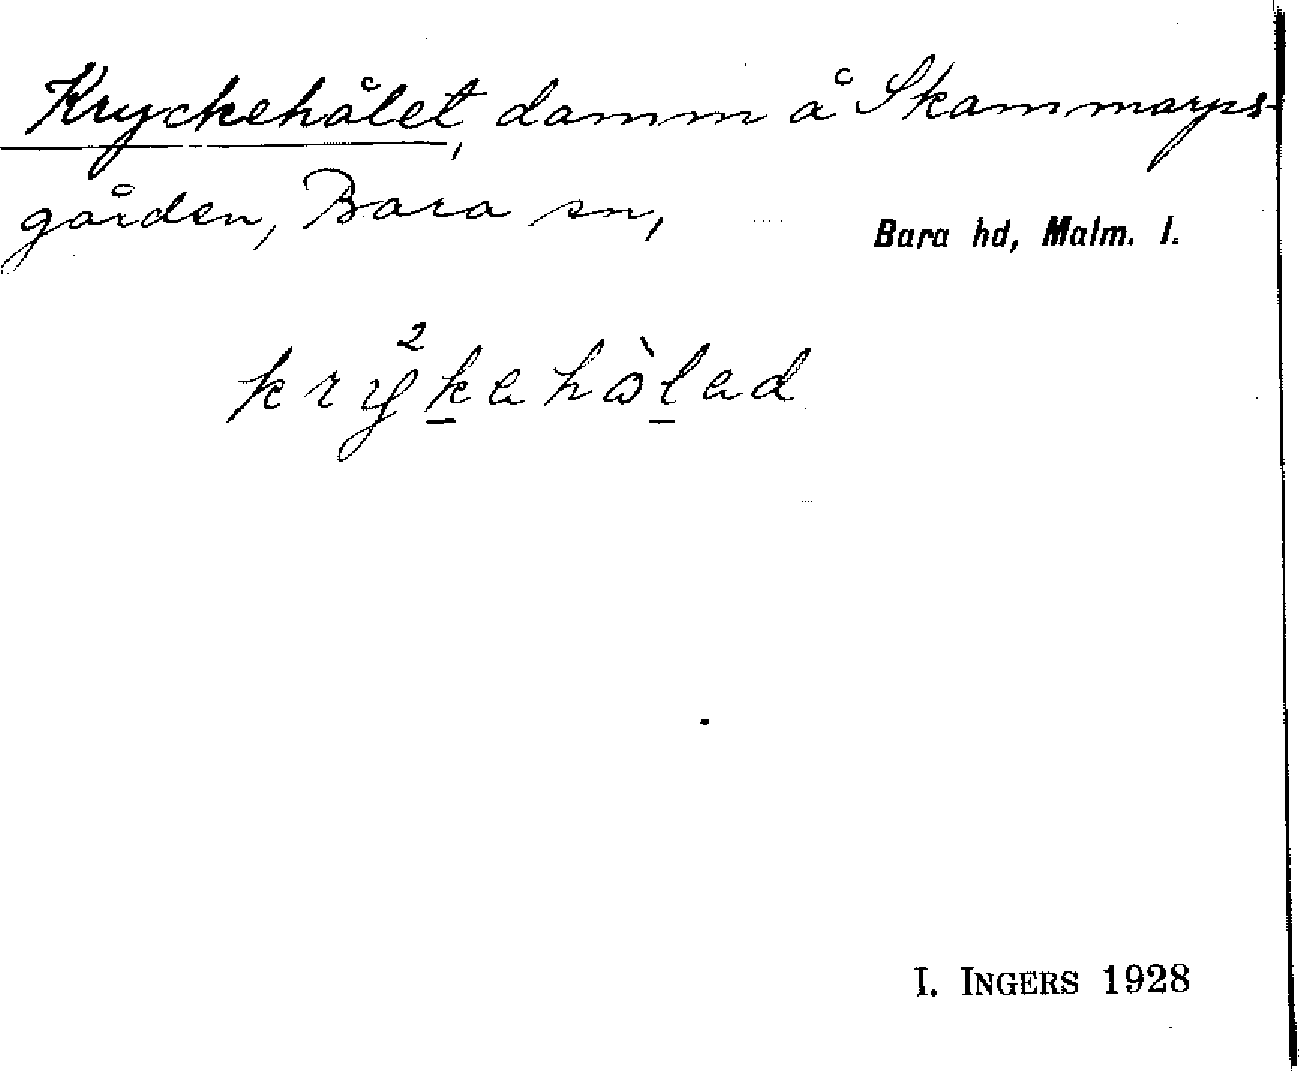 Kryckehålet, damm å Skammarps-
gården, Bara sn, Bara hd, Malm. l.
kry²k̲ahòl̲ad
I. INGERS 1928